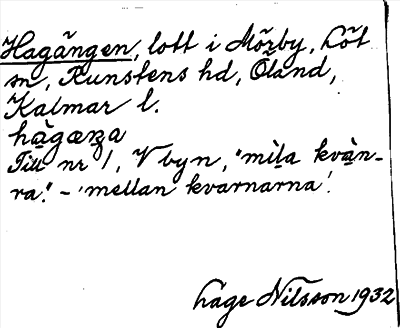 Hagängen, lott i Mörby, Löt
sn, Runstens hd, Öland,
Kalmar l.
hàgæŋa
Till nr 1, V byn, "mìla kvàn-
ra." - 'mellan kvarnarna'.
Åage Nilsson 1932